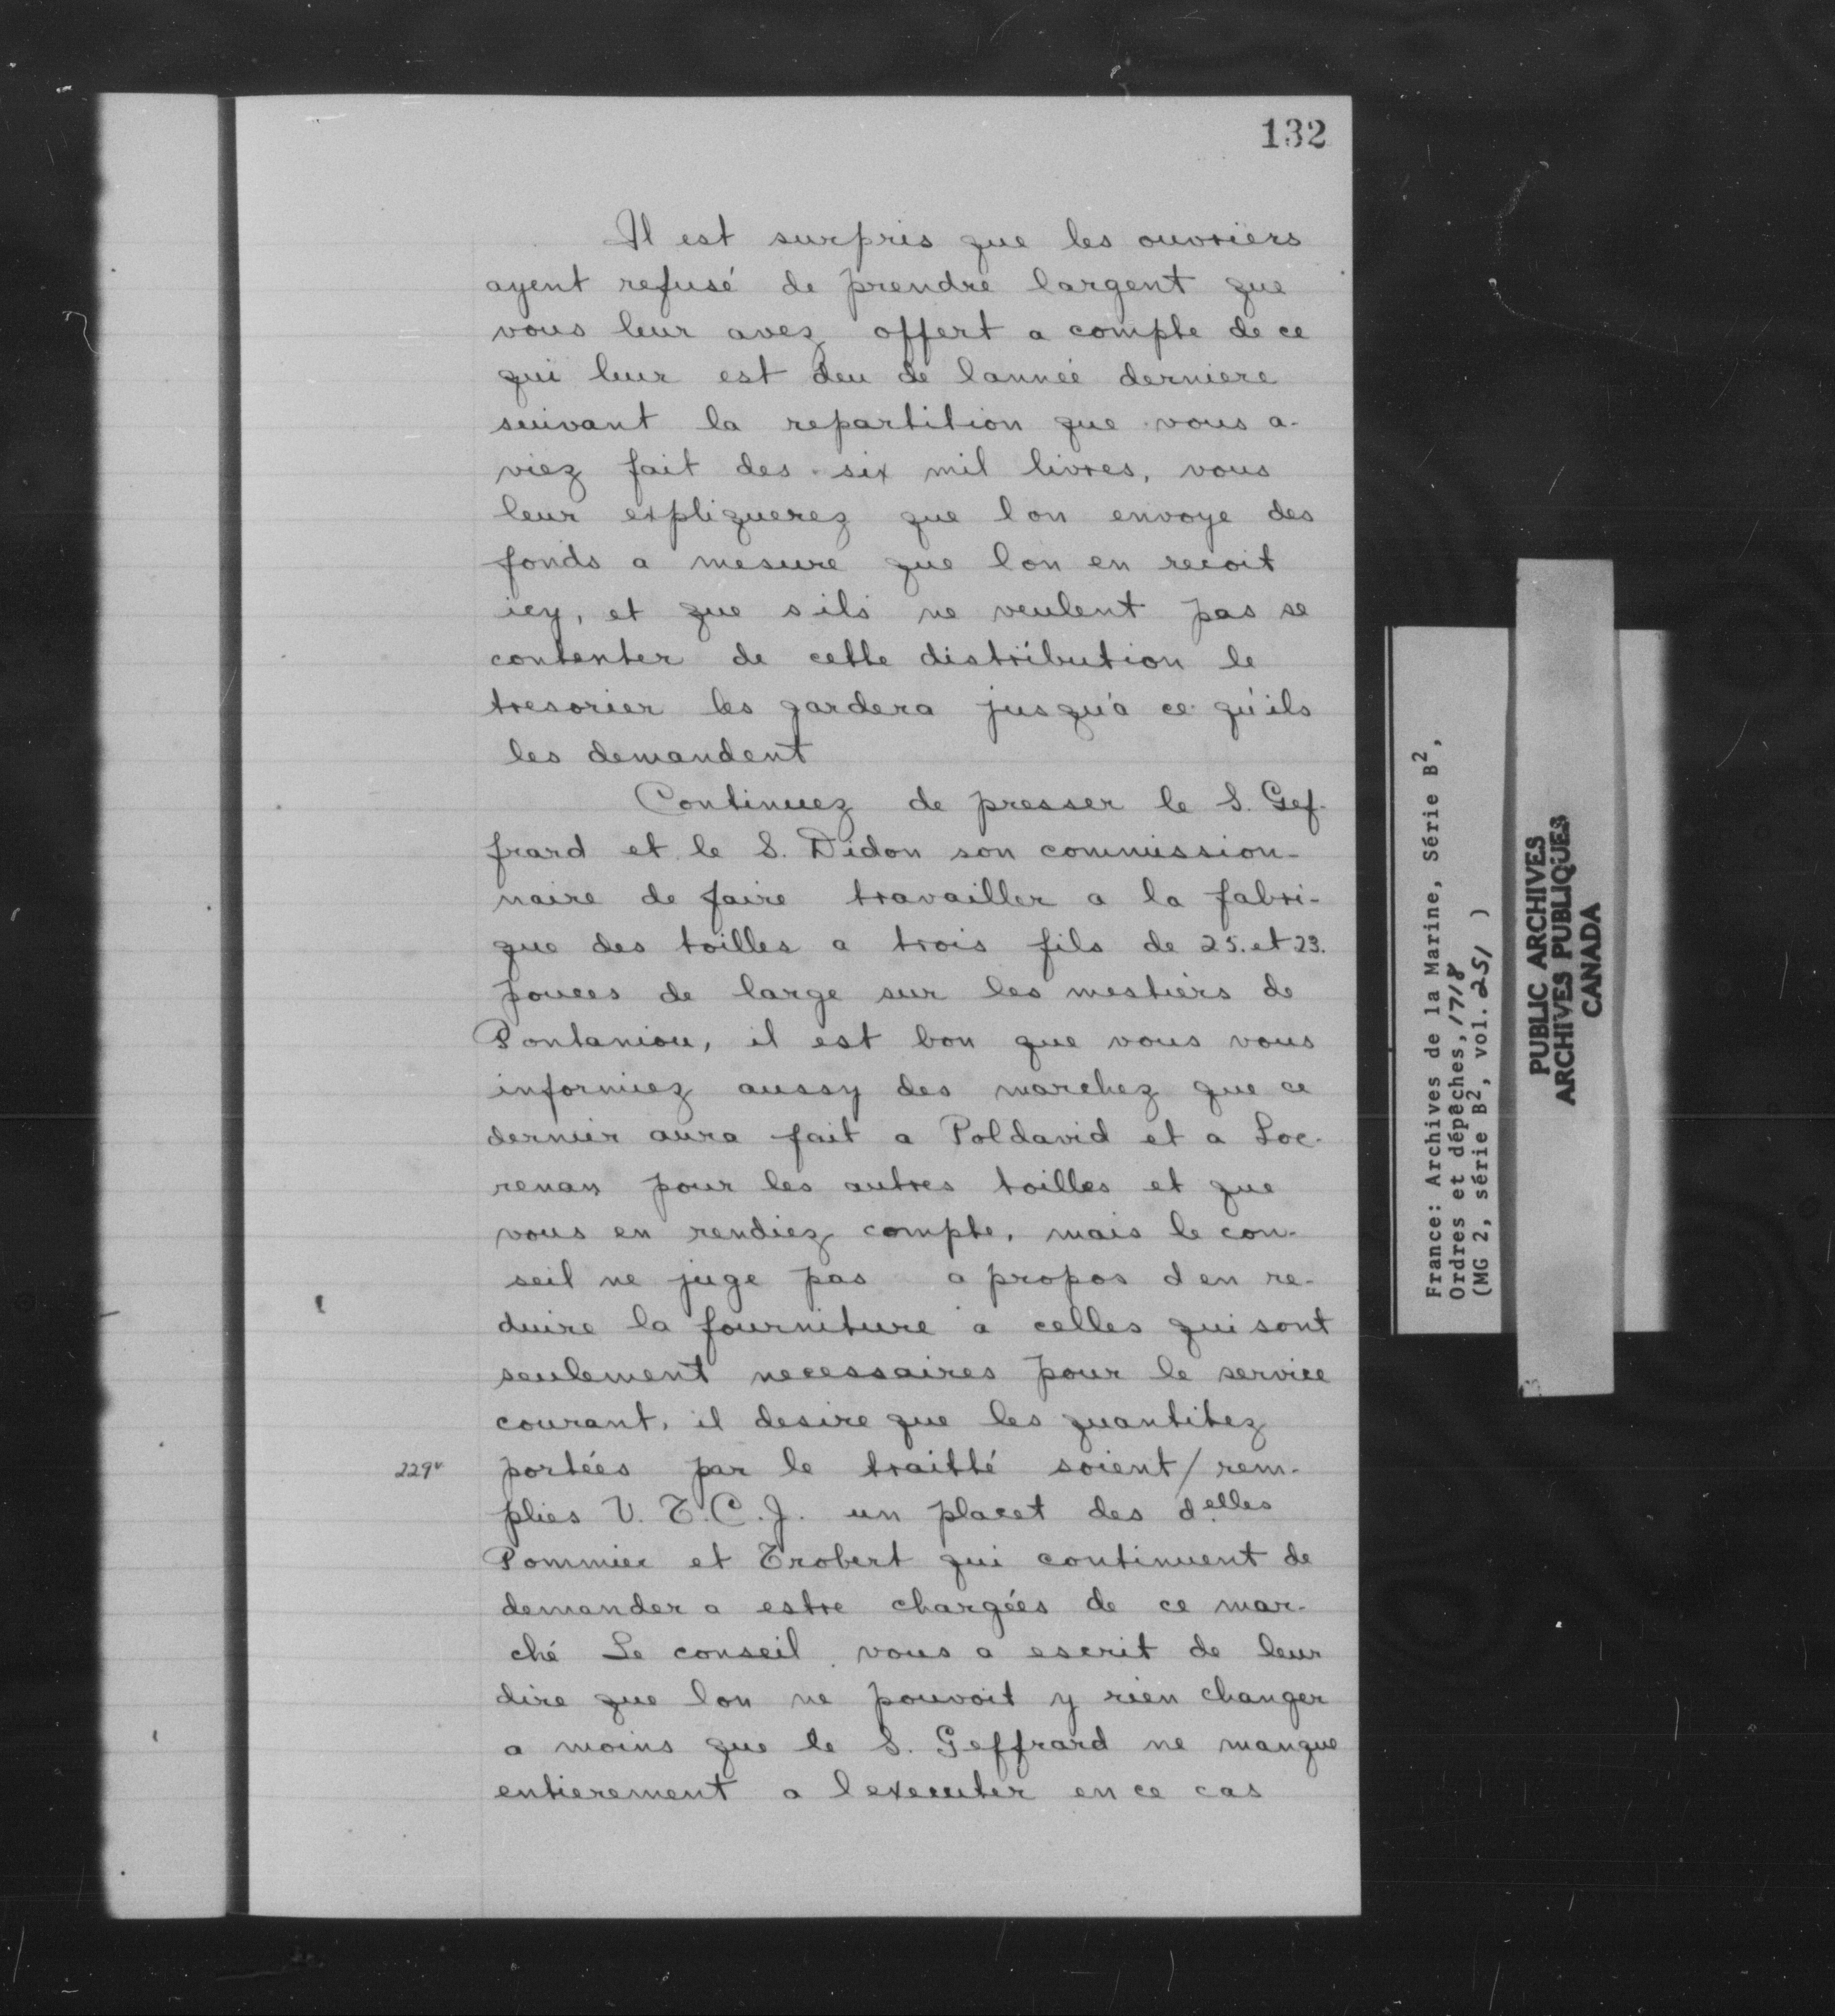 132
Il est surpris que les ouvriers
ayent refusé de prendre largent que
vous leur avez offert a compte de ce
qui leur est deu de lannée derniere
suivant la repartition que vous a-
viez fait des six mil livres, vous
leur expliquerez que lon envoye des
fonds a mesure que lon en recoit
icy, et que sils ne veulent pas se
contenter de cette distribution le
tresorier les gardera jusqu'a ce qu'ils
les demandent
Continuez de presser le S. Gef-
frard et le S. Didon son commission-
naire de faire travailler a la fabri-
que des toilles a trois fils de 25. et 23.
pouces de large sur les mestiers de
Pontaniou, il est bon que vous vous
informiez aussy des marchez que ce
dernier aura fait a Poldavid et a Loc-
renan pour les autres toilles et que
vous en rendiez compte, mais le con-
seil ne juge pas a propos den re-
duire la fourniture a celles qui sont
seulement necessaires pour le service
courant, il desire que les quantitez
229v portées par le traitté soient / rem-
plies V. T. C. J. un placet des d.elles
Pommier et Trobert qui continuent de
demander a estre chargées de ce mar-
ché Le conseil vous a escrit de leur
dire que lon ne pouvoit y rien changer
a moins que le S. Geffrard ne manque
entierement a lexecuter en ce cas
France: Archives de la Marine, Série B2,
Ordres et dépêches, 1718
(MG 2, série B2, vol. 251 )
PUBLIC ARCHIVES
ARCHIVES PUBLIQUES
CANADA